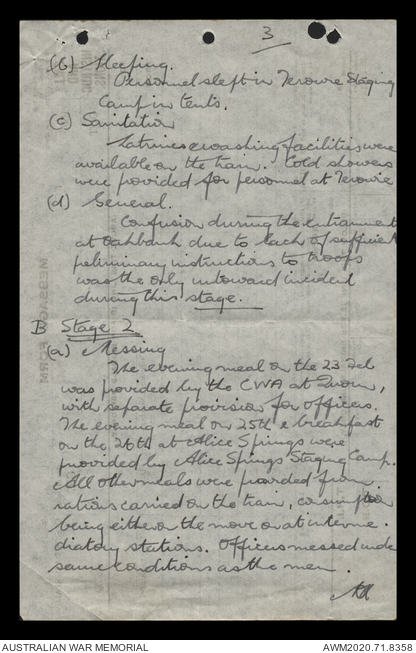 3
(b) Sleeping.
Personnel slept in Terowie Staging
Camp in tents.
(c) Sanitation
Latrines & washing facilities were
available on the train. Cold showers
were provided for personnel at Terowie
(d) General.
Confusion during the entrainment
at Oakbank due to lack of sufficient
preliminary instructions to troops
was the only untoward incident
during this stage.
B Stage 2
(a) Messing
The evening meal on the 23 Feb
was provided by the CWA at Quorn,
with separate provision for officers.
The evening meal on 25th & breakfast
on the 26th at Alice Springs were
provided by Alice Springs Staging Camp.
All other meals were provided from
rations carried on the train, consumption
being either on the move or at interme-
diatory stations. Officers messed under
same conditions as the men.
AUSTRALIAN WAR MEMORIAL
AWM2020.71.8358